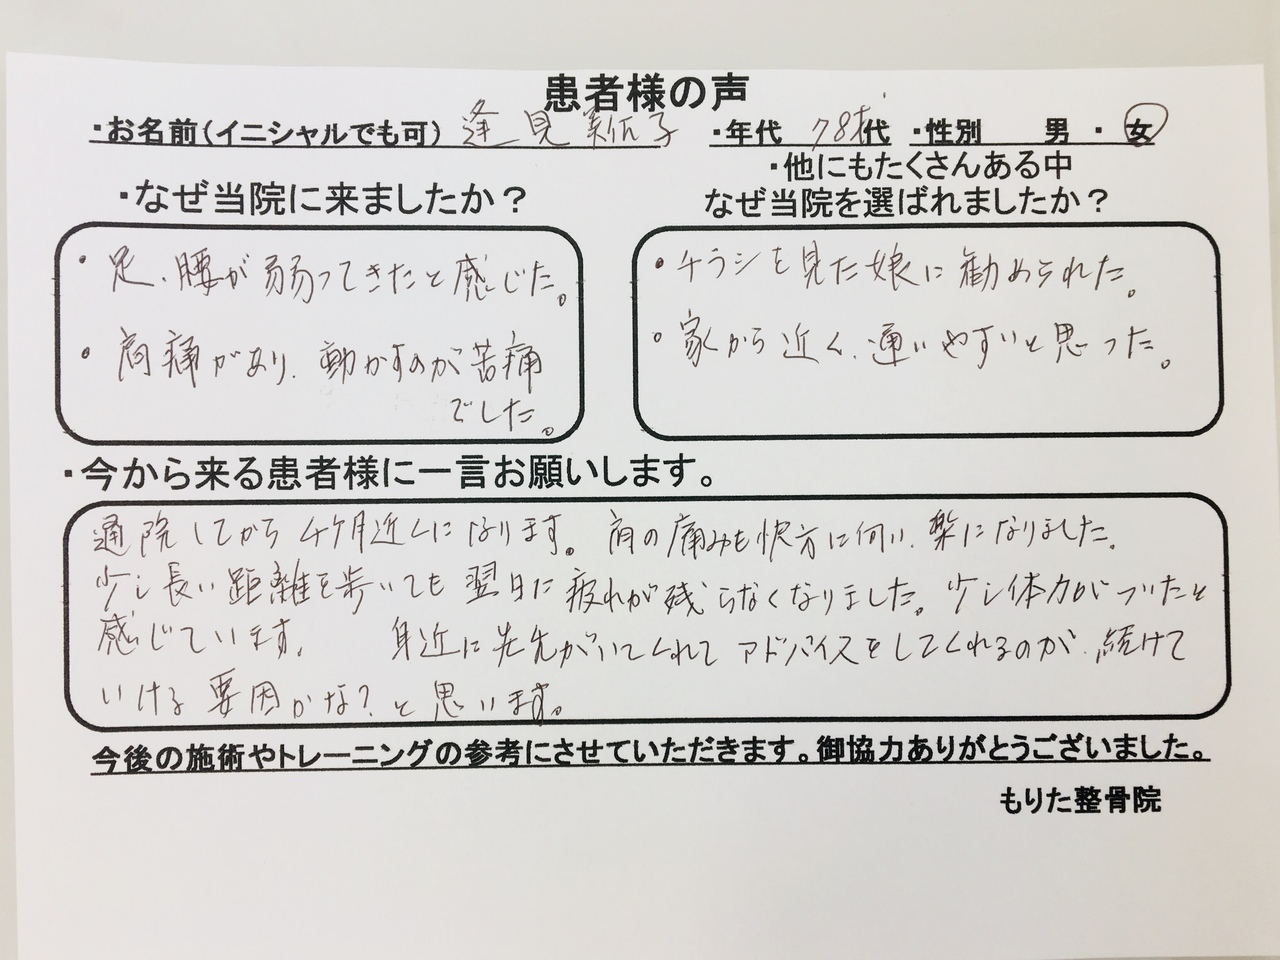 患者様の声
・お名前(イニシャルでも可) 逢見 子 ・年代 78才代 ・性別 男 ・ 女
・なぜ当院に来ましたか?
・他にもたくさんある中
なぜ当院を選ばれましたか?
・足、腰が弱ってきたと感じた。
・肩痛があり、動かすのが苦痛
でした。
・チラシを見た娘に勧められた。
・家から近く、通いやすいと思った。
・今から来る患者様に一言お願いします。
通院してから4ケ月近くになります。肩の痛みも快方に向い、楽になりました。
少し長い距離を歩いても翌日に疲れが残らなくなりました。少し体力がついたと
感じています。 身近に先生がいてくれてアドバイスをしてくれるのが、続けて
いける要因かな?と思います。
今後の施術やトレーニングの参考にさせていただきます。御協力ありがとうございました。
もりた整骨院